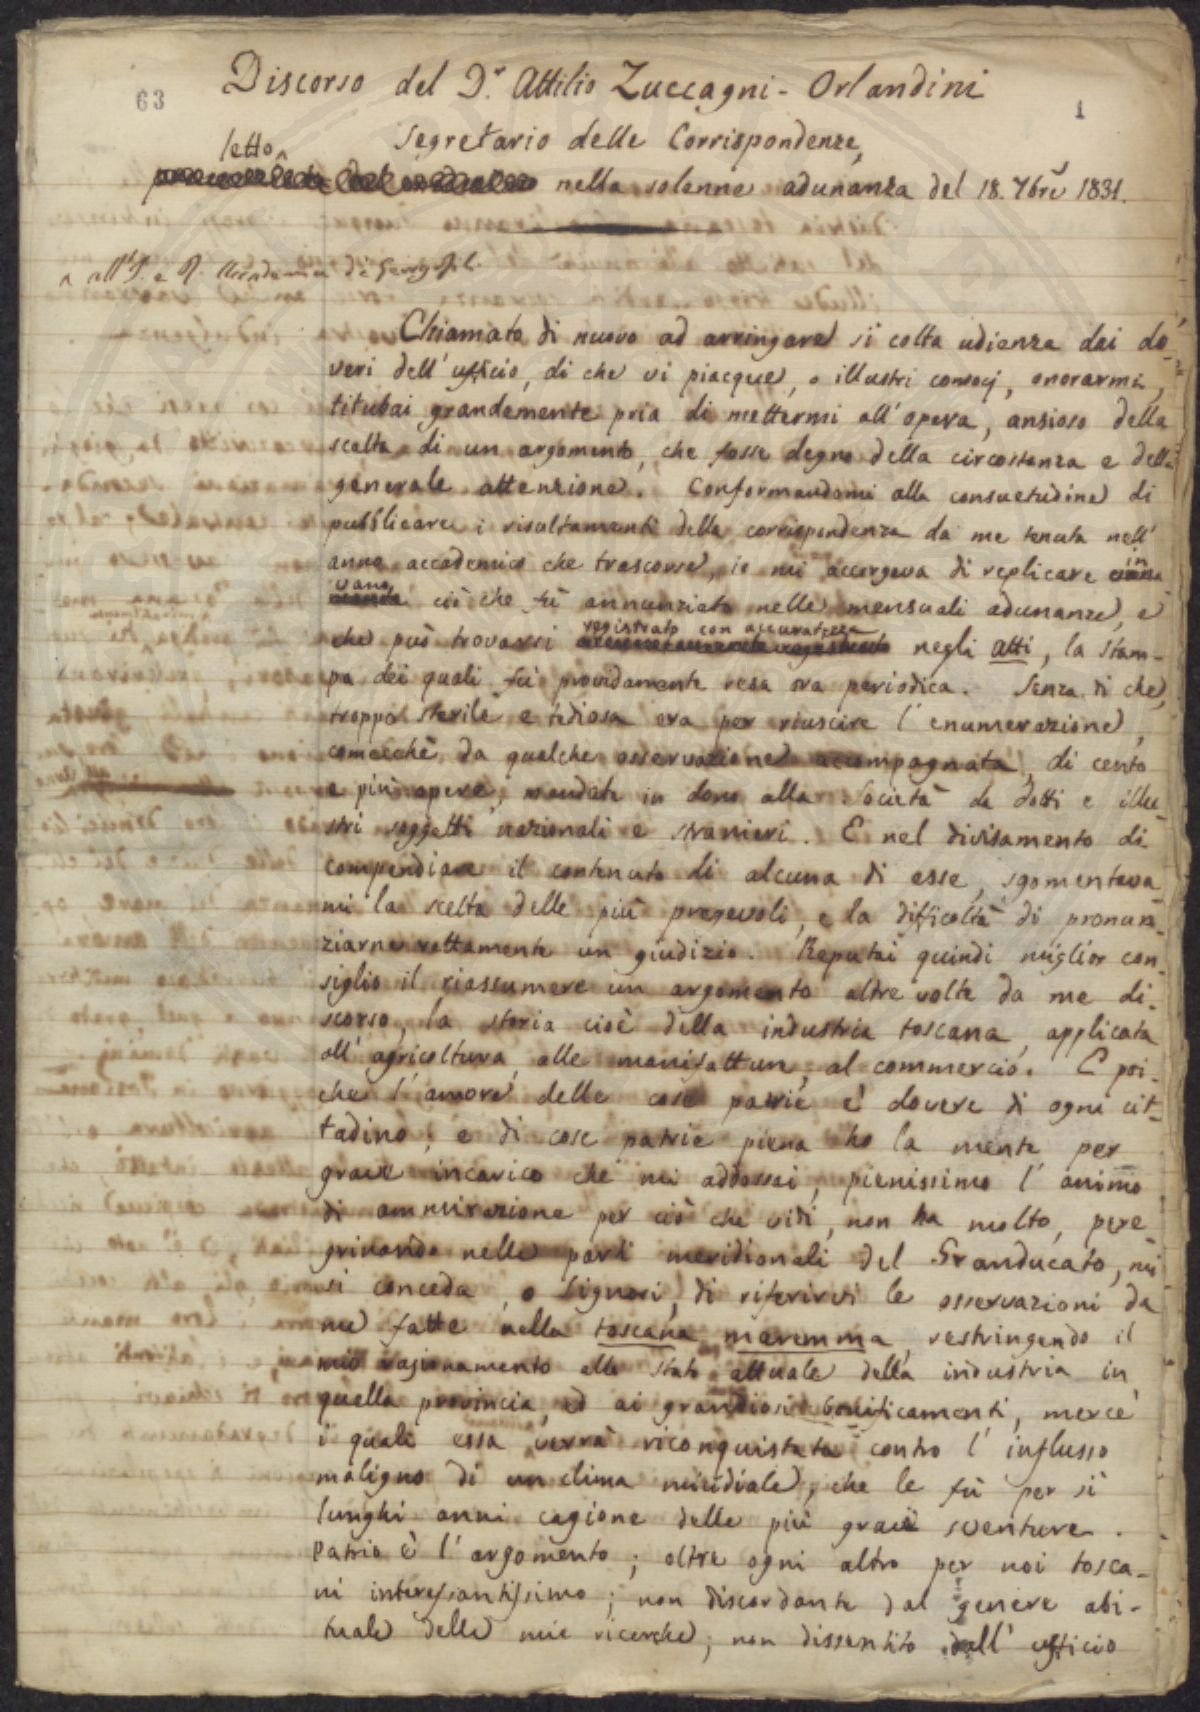 63
1
Discorso del D.r Attilio Zuccagni-Orlandini
Segretario delle Corrispondenze,
letto
nella solenne adunanza del 18. 7bre 1831.
all'I. e R. Accademia de' Georgofili
Chiamato di nuovo ad arringare sì colta udienza dai do-
veri dell'ufficio, di che vi piacque, o illustri consocj, onorarmi,
titubai grandemente pria di mettermi all'opera, ansioso della
scelta di un argomento, che fosse degno della circostanza e della
generale attenzione. Conformandomi alla consuetudine di
pubblicare i risultamenti della corrispondenza da me tenuta nell'
anno accademico che trascorse, io mi accorgeva di replicare in
vano ciò che fù annunziato nelle mensuali adunanze, e
che può trovarsi registrato con accuratezza negli atti, la stam-
pa dei quali fù providamente resa ora periodica. Senza di che,
troppo sterile e tediosa era per riuscire l'enumerazione,
comecchè da qualche osservazione accompagnata, di cento
e più opere, mandate in dono alla Società da dotti e illu-
stri soggetti nazionali e stranieri. E nel divisamento di
compendiare il contenuto di alcuna di esse, sgomentava
mi la scelta delle più pregevoli, e la difficoltà di pronun-
ziarne rettamente un giudizio. Reputai quindi miglior con-
siglio il riassumere un argomento altre volte da me di-
scorso, la storia cioè della industria toscana, applicata
all'agricoltura, alle manifatture, al commercio. E poi-
che l'amore delle cose patrie è dovere di ogni cit-
tadino, e di cose patrie piena ho la mente per
grave incarico che mi addossai, pienissimo l'animo
di ammirazione per ciò che vidi, non ha molto, pere-
grinando nelle parti meridionali del Granducato, mi
si conceda, o Signori, di riferirvi le osservazioni da
me fatte nella toscana maremma, restringendo il
mio ragionamento allo stato attuale della industria in
quella provincia, ed ai grandiosi bonificamenti, mercè
i quali essa verrà riconquistata contro l'influsso
maligno di un clima micidiale, che le fù per sì
lunghi anni cagione delle più gravi sventure.
Patrio è l'argomento; oltre ogni altro per noi tosca-
ni interessantissimo; non discordante dal genere abi-
tuale delle mie ricerche; non dissentito dall'ufficio